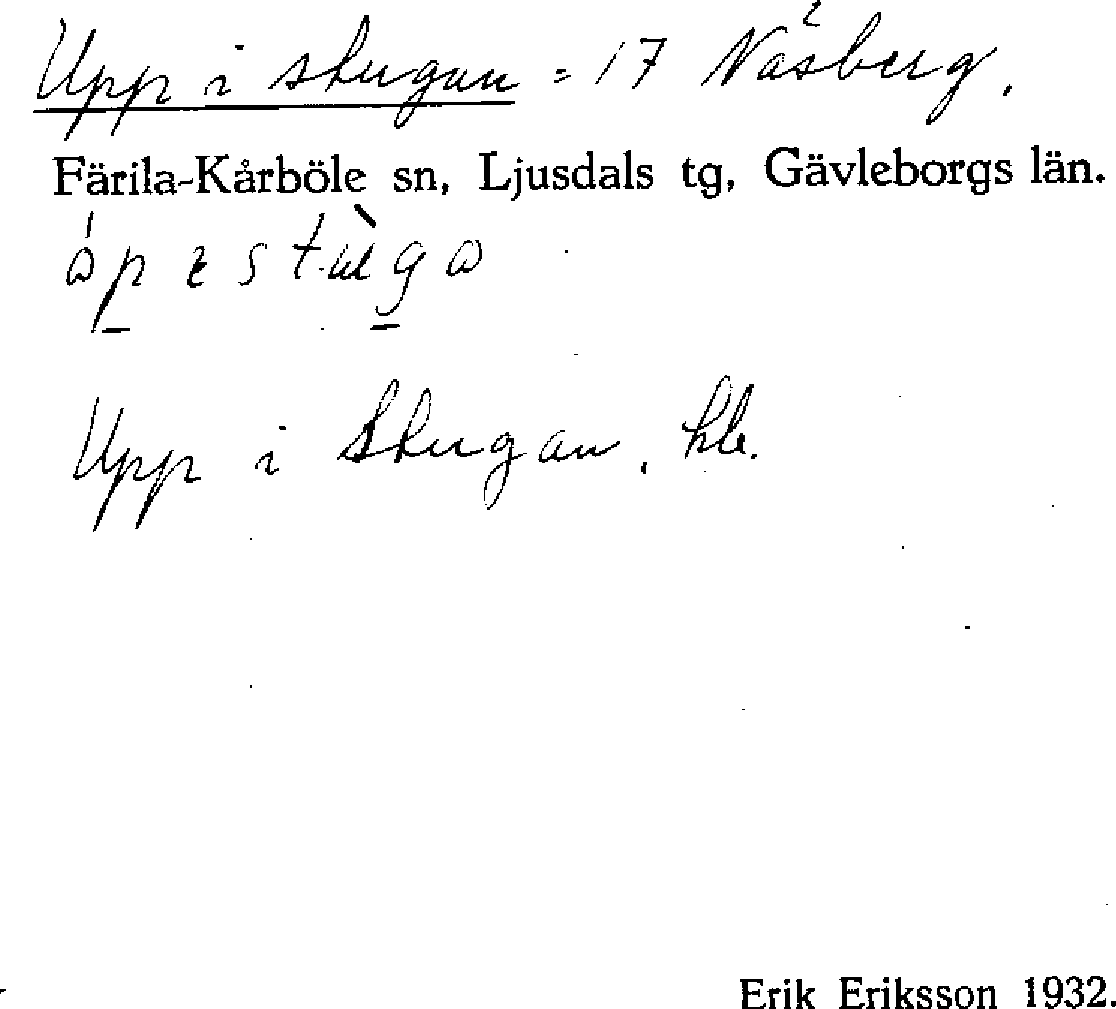 Upp i stugan = 17 Näsberg 2.
Färila-Kårböle sn, Ljusdals tg, Gävleborgs län.
Upp i Stugan, hle.
Erik Eriksson 1932.